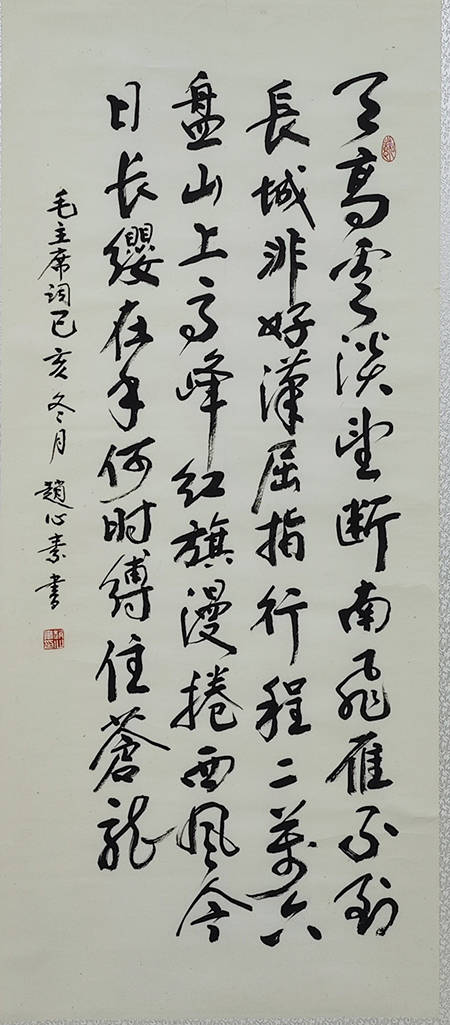 天高雲淡望断南飛雁不到
長城非好漢屈指行程二萬六
盘山上高峰红旗漫捲西風今
日长缨在手何时缚住蒼龍
毛主席词己亥冬月 趙心素書